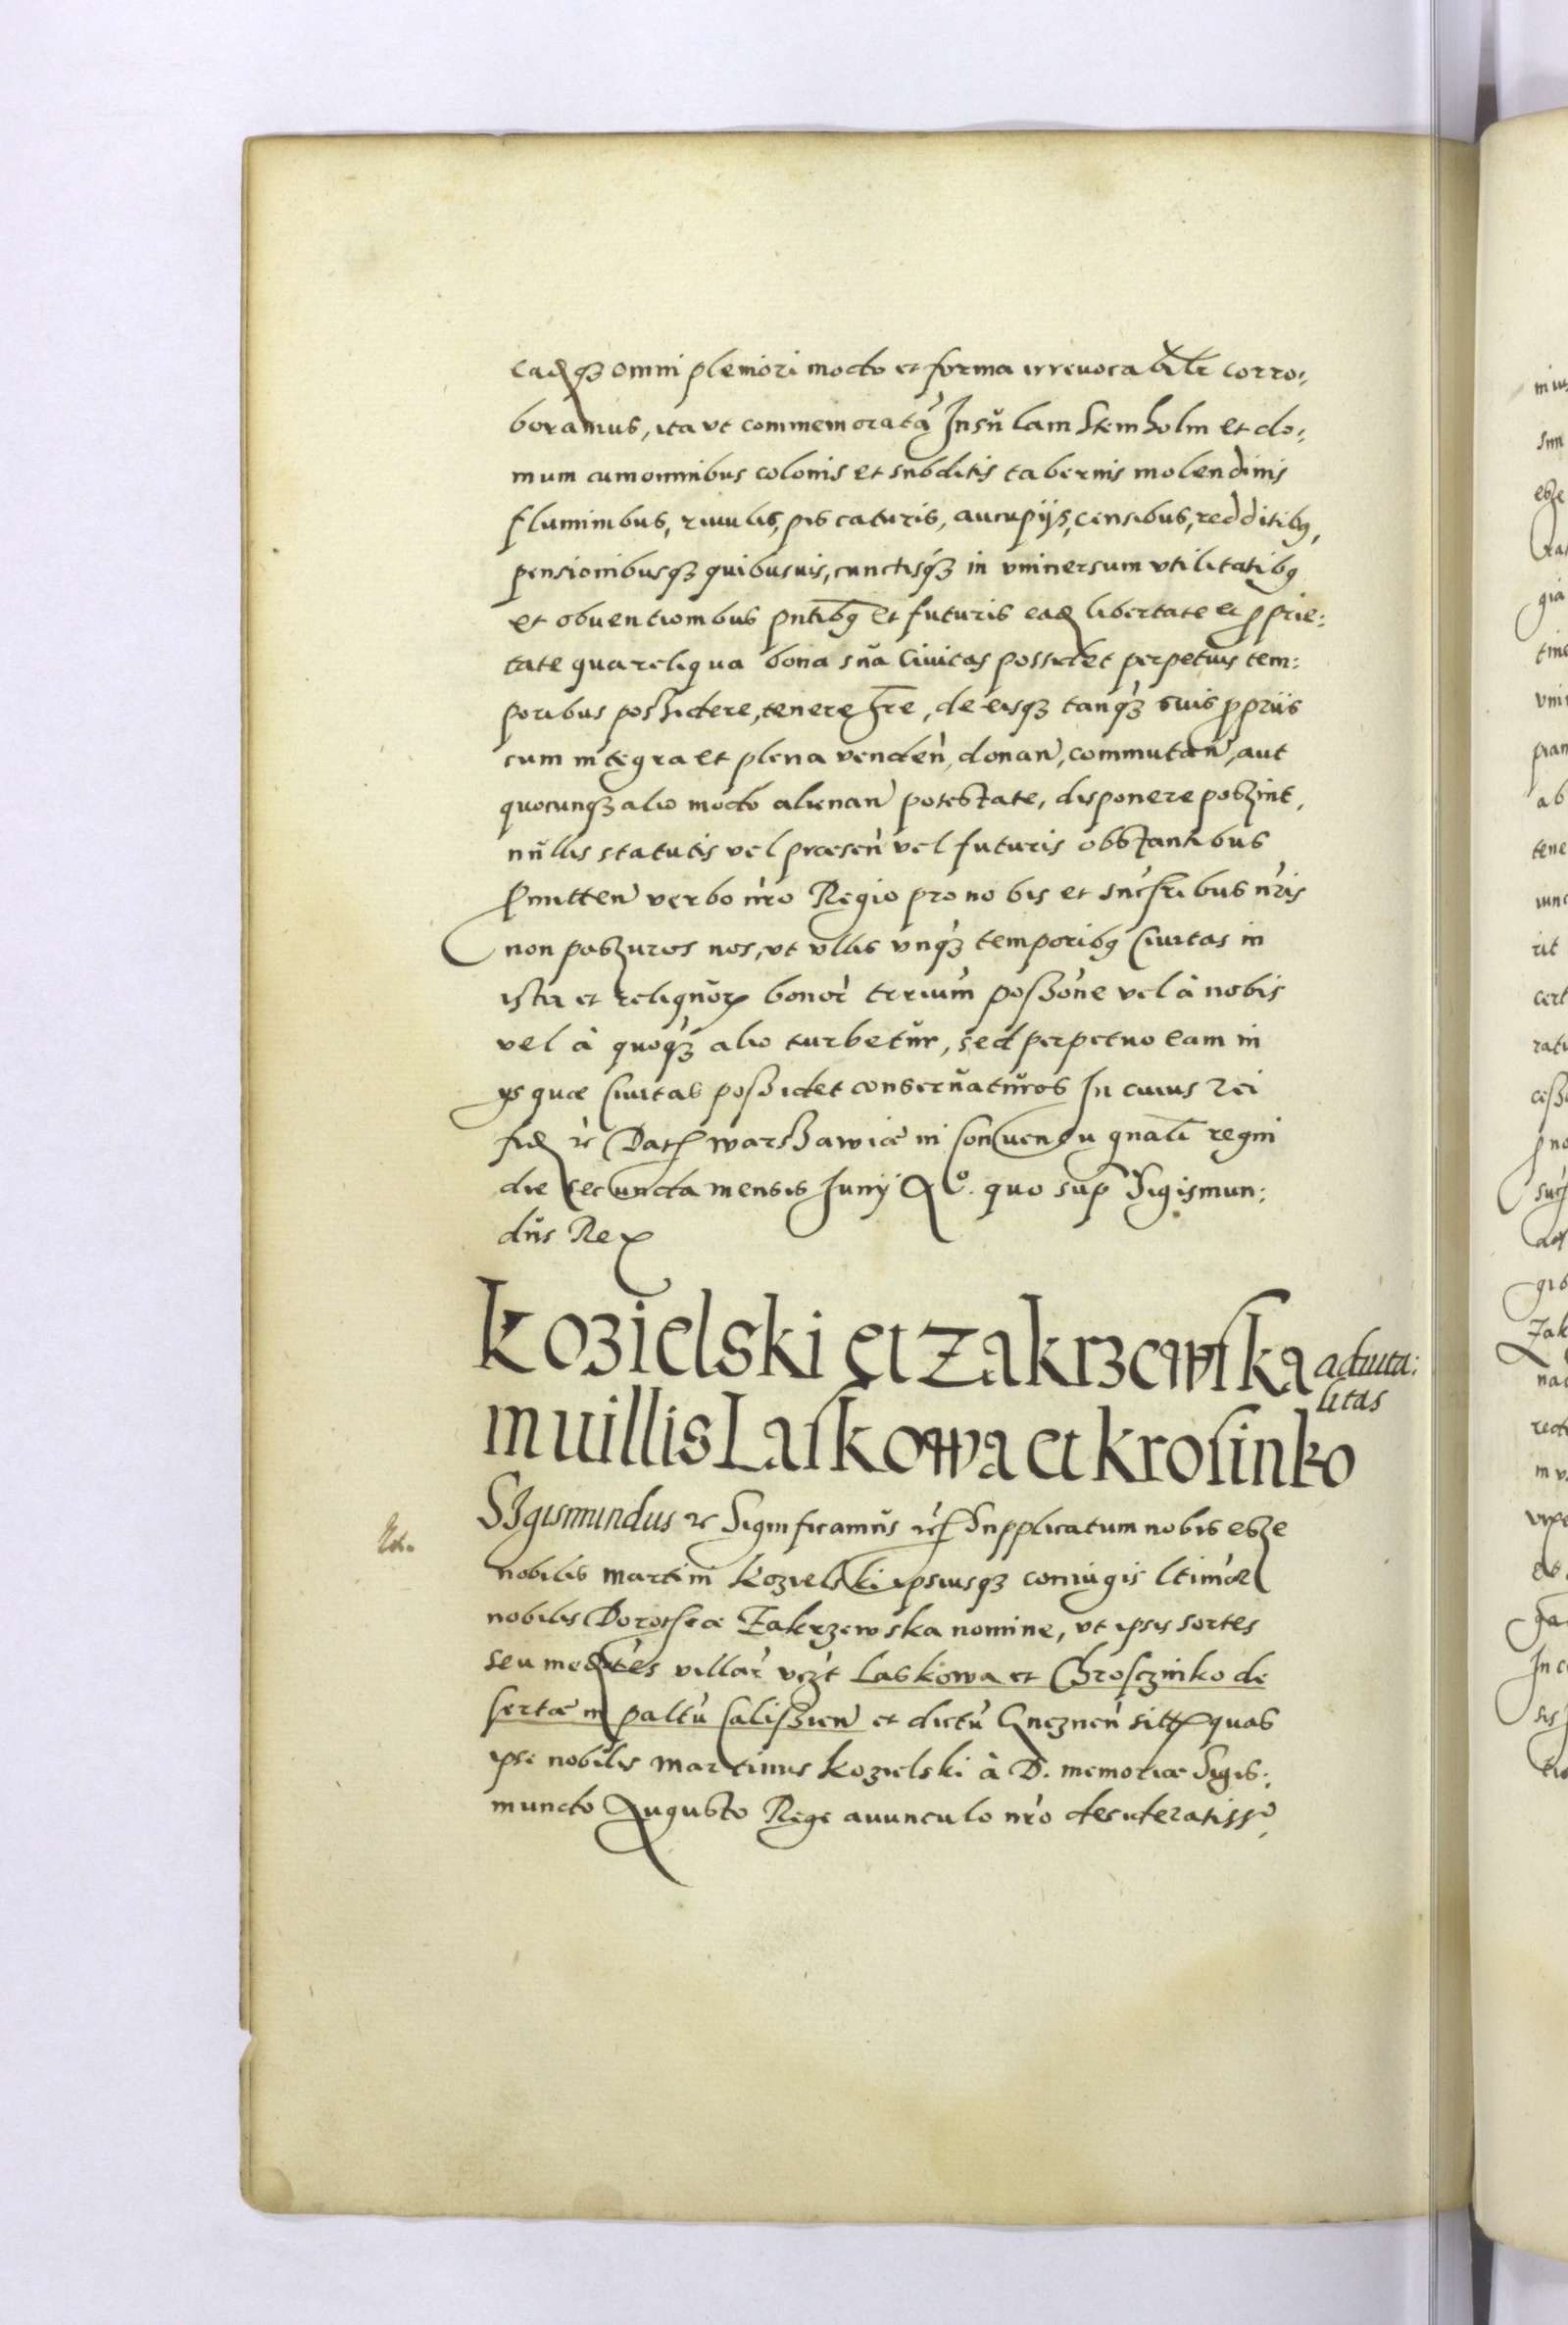 eadq3 omni pleniori modo et forma irreuocabilr corro:
boramus, ita vt commemoratã Insulam Stemholm et do:
mum cum omnibus colonis et subditis tabernis molendinis
fluminibus, riuulis, piscaturis, aucupijs, censibus, redditib9,
pensionibusq3 quibusuis, cunctisq3 in vniuersum vtilitatib9
et obuentionibus pntib9 et futuris ead libertate et pprie:
tate qua reliqua bona sua Ciuitas possidet perpetuis tem:
poribus possidere, tenere hre, de eisq3 tanq3 suis pprijs
cum integra et plena venden, donan, commutan, aut
quocunq3 alio modo alienan potestate, disponere possint,
nullis statutis vel præsen vel futuris obstantibus
Pmitten verbo nro Regio pro nobis et sucsribus nris
non passuros nos, vt vllis vnq3 temporib9 Ciuitas in
ista et reliquorum bonor possone vel à nobis
vel à quoq3 alio turbetur, sed perpetuo eam in
ys quæ Ciuitas possidet conseruaturos In cuius rei
fid etc Dat Warschawiæ in Conuentu gnali regni
die secunda mensis Iunij Ao. quo sup Sigismun:
dus Rex
Kozielski et Zakrzewska aduita:
litas
in villis Laskowa et Krosinko
Sigismundus etc Significamus etc Supplicatum nobis esse
nobilis Martini Kozielski ipsiusq3 coniugis ltimæ
nobilis Dorotheæ Zakrzewska nomine, vt ipsis sortes
seu medtes villar vczt Laskowa et Chrosczinko de
sertæ in paltu Calissien et dictu Gneznen sitt quas
ipse nobilis Martinus Kozielski à D. memoriæ Sigis:
mundo Augusto Rege auunculo nro desideratiss°,